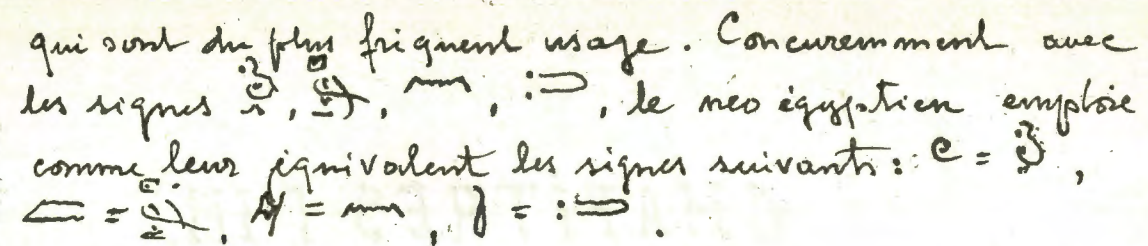 qui sont du plus fréquent usage. Concuremment avec
les signes , , , , le neo égyptien emploie
comme leur équivalent les signes suivants: = ,
= , = , = .